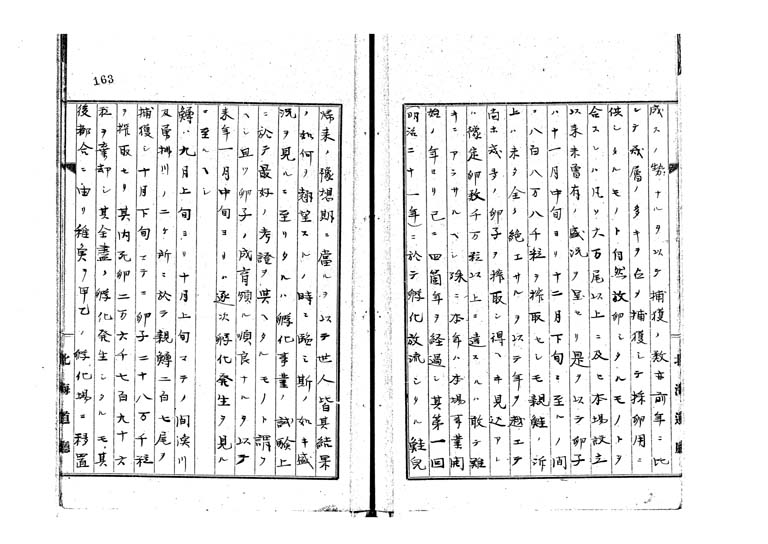 成スノ勢ナルヲ以テ捕獲ノ数亦前年ニ比
シテ幾層ノ多キヲ占メ捕獲シテ採卵用ニ
供シタルモノト自然放卵シタルモノトヲ
合スレハ凡ソ六万尾以上ニ及ヒ本場設立
以来未曾有ノ盛況ヲ呈セリ是ヲ以テ卵子
ハ十一月中旬ヨリ十二月下旬ニ至ルノ間
八百八万八千粒ヲ搾取セシモ親鮭ノ泝
上ハ未タ全ク絶エサルヲ以テ年ヲ越エテ
尚ホ幾多ノ卵子ヲ搾取シ得ヘキ見込アレ
ハ豫定卵数千万粒以上ニ達スルハ敢テ難
キニアラサルヘシ殊ニ本年ハ本場事業開
始ノ年ヨリ已ニ四箇年ヲ経過シ其第一回
(明治二十一年)ニ於テ孵化放流シタル鮭児
163
帰来ノ豫想期ニ當ルヲ以テ世人皆其結果
ノ如何ヲ翹望スルノ時ニ臨ミ斯ノ如キ盛
況ヲ見ルニ至リタルハ孵化事業ノ試験上
ニ於テ最好ノ考證ヲ與ヘタルモノト謂フ
ヘシ且ツ卵子ノ成育頗ル順良ナルヲ以テ
来年一月中旬ヨリハ逐次孵化発生ヲ見ル
ニ至ルヘシ
鱒ハ九月上旬ヨリ十月上旬マテノ間渓川
及
捕獲シ十月下旬マテニ卵子二十八万千粒
ヲ搾取セリ其内死卵二万六千七百九十六
粒ヲ棄却シ其全盡ク孵化発生シタルモ其
後都合ニ由リ稚魚ヲ甲乙ノ孵化場ニ移置
北海道廳
北海道廳